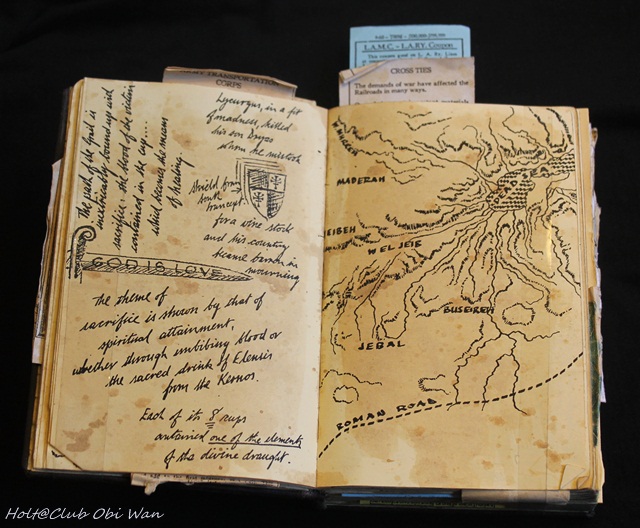 L.A.M.C. - L.A.RY. Coupon
CROSS TIES
The demands of war have affected the
Railroads in many ways.
TRANSPORTATION
CORPS
The path of the Grail is
inextricably bound up with
sacrifice: the blood of the victim
contained in the cup...
which becomes the means
of healing.
Lycurgus, in a fit
of madness, killed
his son Dryas
whom he mistook
shield from
south
transept.
for a vine stock
and his country
became barren in
mourning
GOD IS LOVE
The theme of
sacrifice is shown by that of
spiritual attainment,
whether through imbibing blood or
the sacred drink of Eleusis
from the Kernos.
Each of its 8 cups
contained one of the elements
of the divine draught.
MADERAH
WEL JEIB
BUSEIREH
JEBAL
ROMAN ROAD
Holt@Club Obi Wan